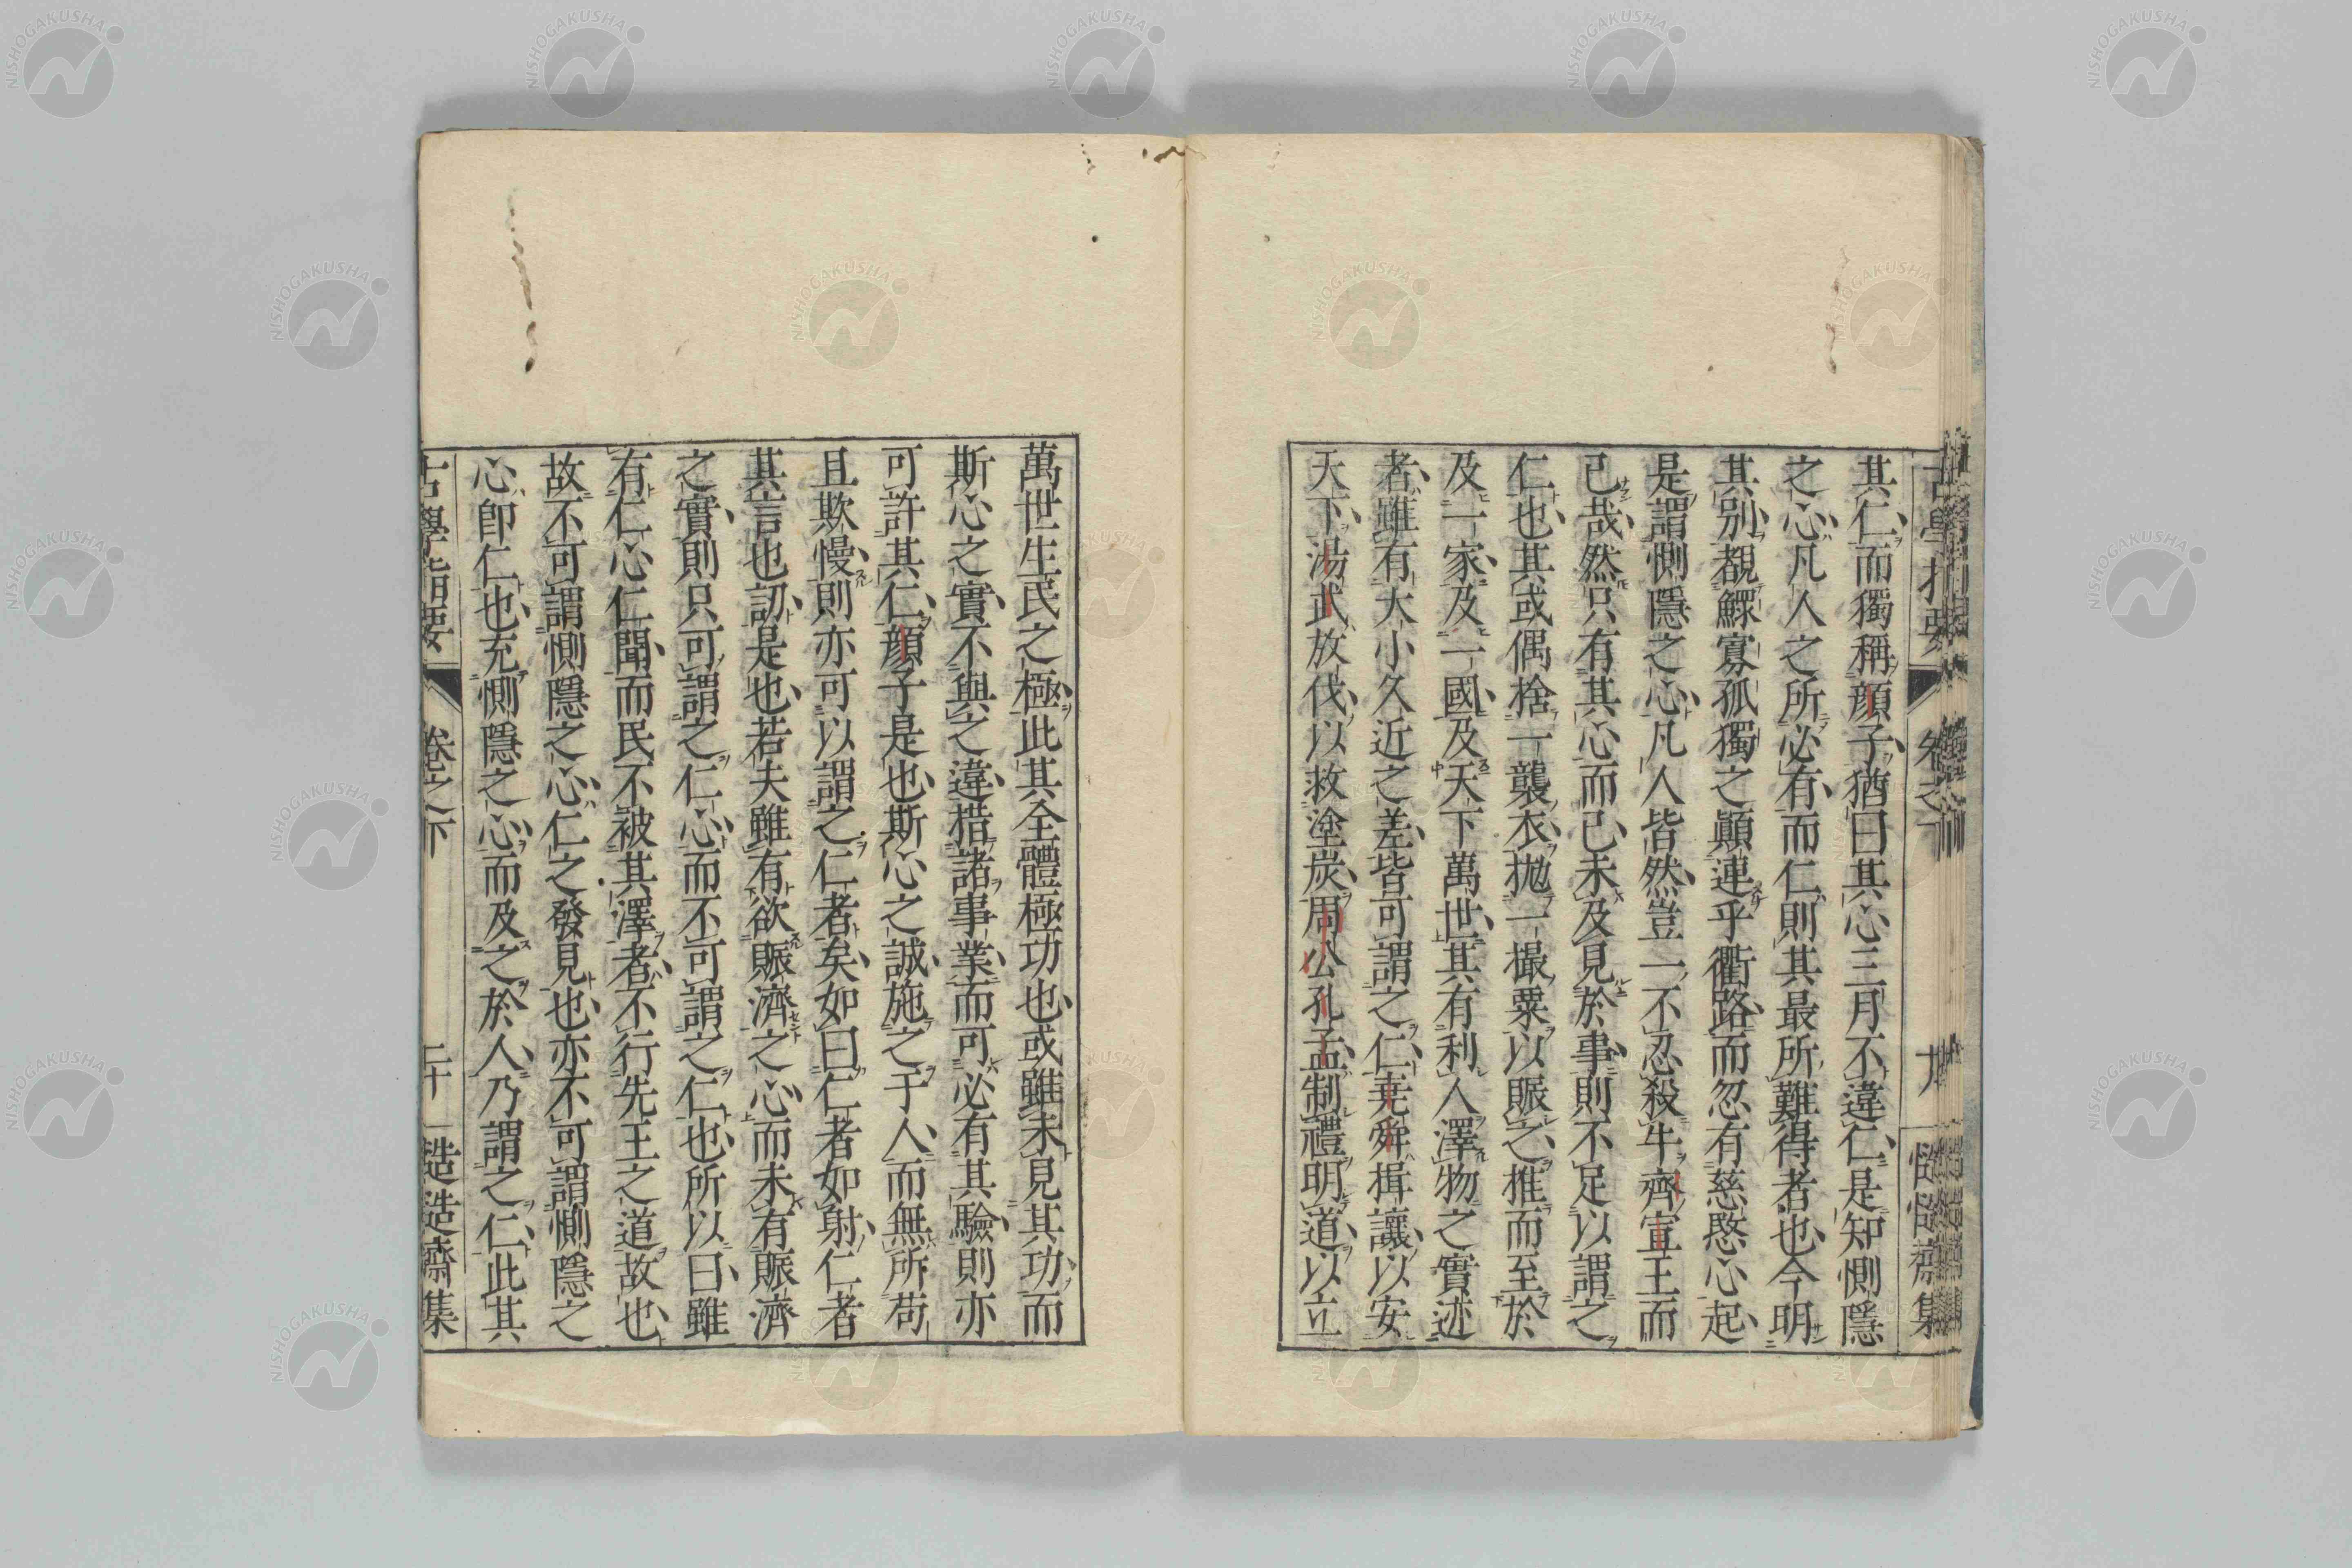 其仁而獨稱顏子猶曰其心三月不違仁是知惻隱
之心凡人之所必有而仁則其最所難得者也今明
其別覩鰥寡孤獨之顚連乎衢路而忽有慈愍心起
是謂惻隱之心凡人皆然豈一不忍殺牛齊宣王而
已哉然只有其心而已未及見於事則不足以謂之
仁也其或偶捨一襲衣拋一撮粟以賑之推而至於
及一家及一國及天下萬世其有利人澤物之實迹
者雖有大小久近之差皆可謂之仁堯舜揖讓以安
天下湯武放伐以救塗炭周公孔孟制禮明道以立
萬世生民之極此其全體極功也或雖未見其功而
斯心之實不與之違措諸事業而可必有其驗則亦
可許其仁顏子是也斯心之誠施之于人而無所苟
且欺慢則亦可以謂之仁者矣如曰仁者如射仁者
其言也訒是也若夫雖有欲賑濟之心而未有賑濟
之實則只可謂之仁心而不可謂之仁也所以曰雖
有仁心仁聞而民不被其澤者不行先王之道故也
故不可謂惻隱之心仁之發見也亦不可謂惻隱之
心卽仁也充惻隱之心而及之於人乃謂之仁此其
古學指要 卷之下 二十 慥慥齋集
NISHOGAKUSHA